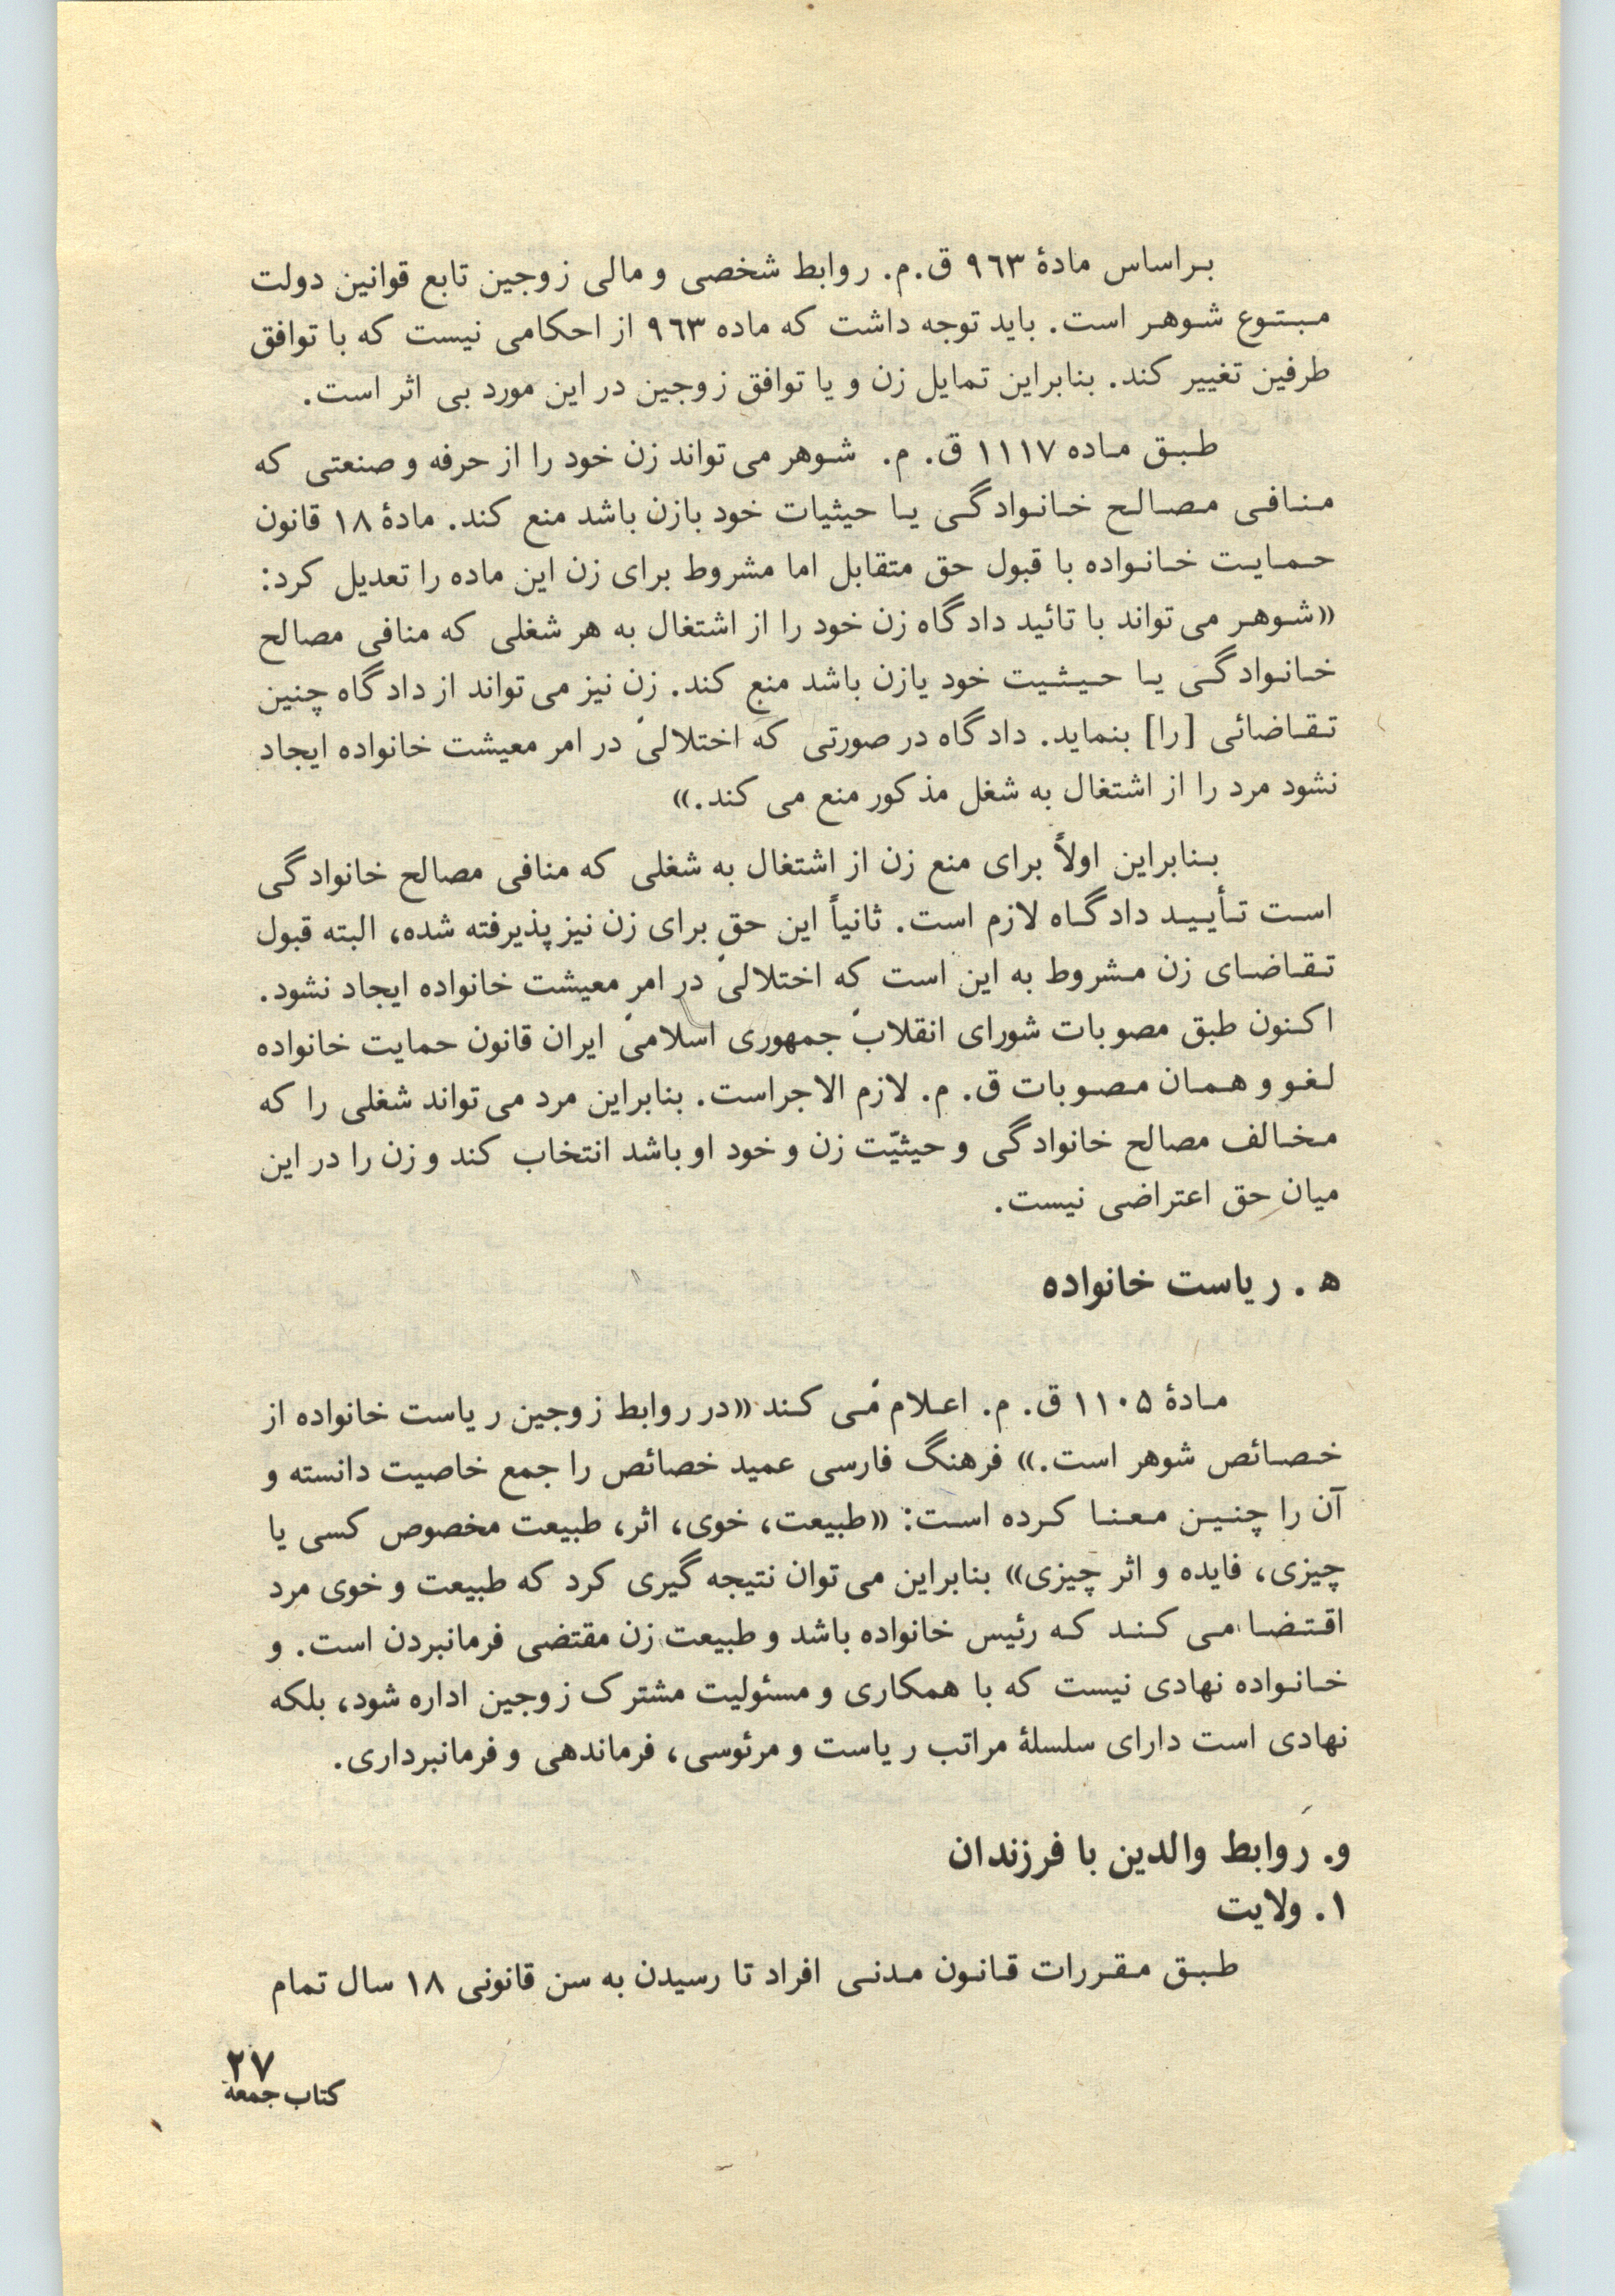 براساس مادهٔ ۹۶۳ ق.م. روابط شخصی و مالی زوجین تابع قوانین دولت
مبتوع شوهر است. باید توجه داشت که ماده ۹۶۳ از احکامی نیست که با توافق
طرفین تغییر کند. بنابراین تمایل زن و یا توافق زوجین در این مورد بی اثر است.
طبق ماده ۱۱۱۷ ق. م. شوهر می تواند زن خود را از حرفه و صنعتی که
منافی مصالح خانوادگی یا حیثیات خود بازن باشد منع کند. مادهٔ ۱۸ قانون
حمایت خانواده با قبول حق متقابل اما مشروط برای زن این ماده را تعدیل کرد:
«شوهر می تواند با تائید دادگاه زن خود را از اشتغال به هر شغلی که منافی مصالح
خانوادگی یا حیثیت خود یازن باشد منع کند. زن نیز می تواند از دادگاه چنین
تقاضائی [را] بنماید. دادگاه در صورتی که اختلالی در امر معیشت خانواده ایجاد
نشود مرد را از اشتغال به شغل مذکور منع می کند.»
بنابراین اولاً برای منع زن از اشتغال به شغلی که منافی مصالح خانوادگی
است تأیید دادگاه لازم است. ثانیاً این حق برای زن نیز پذیرفته شده، البته قبول
تقاضای زن مشروط به این است که اختلالی در امر معیشت خانواده ایجاد نشود.
اکنون طبق مصوبات شورای انقلاب جمهوری اسلامی ایران قانون حمایت خانواده
لغو و همان مصوبات ق. م. لازم الاجراست. بنابراین مرد می تواند شغلی را که
مخالف مصالح خانوادگی و حیثیّت زن و خود او باشد انتخاب کند و زن را در این
میان حق اعتراضی نیست.
ه . ریاست خانواده
مادهٔ ۱۱۰۵ ق. م. اعلام می کند «در روابط زوجین ریاست خانواده از
خصائص شوهر است.» فرهنگ فارسی عمید خصائص را جمع خاصیت دانسته و
آن را چنین معنا کرده است: «طبیعت، خوی، اثر، طبیعت مخصوص کسی یا
چیزی، فایده و اثر چیزی» بنابراین می توان نتیجه گیری کرد که طبیعت و خوی مرد
اقتضا می کند که رئیس خانواده باشد و طبیعت زن مقتضی فرمانبردن است. و
خانواده نهادی نیست که با همکاری و مسئولیت مشترک زوجین اداره شود، بلکه
نهادی است دارای سلسلهٔ مراتب ریاست و مرئوسی، فرماندهی و فرمانبرداری.
و. روابط والدین با فرزندان
۱. ولایت
طبق مقررات قانون مدنی افراد تا رسیدن به سن قانونی ۱۸ سال تمام
۲۷
کتاب جمعه